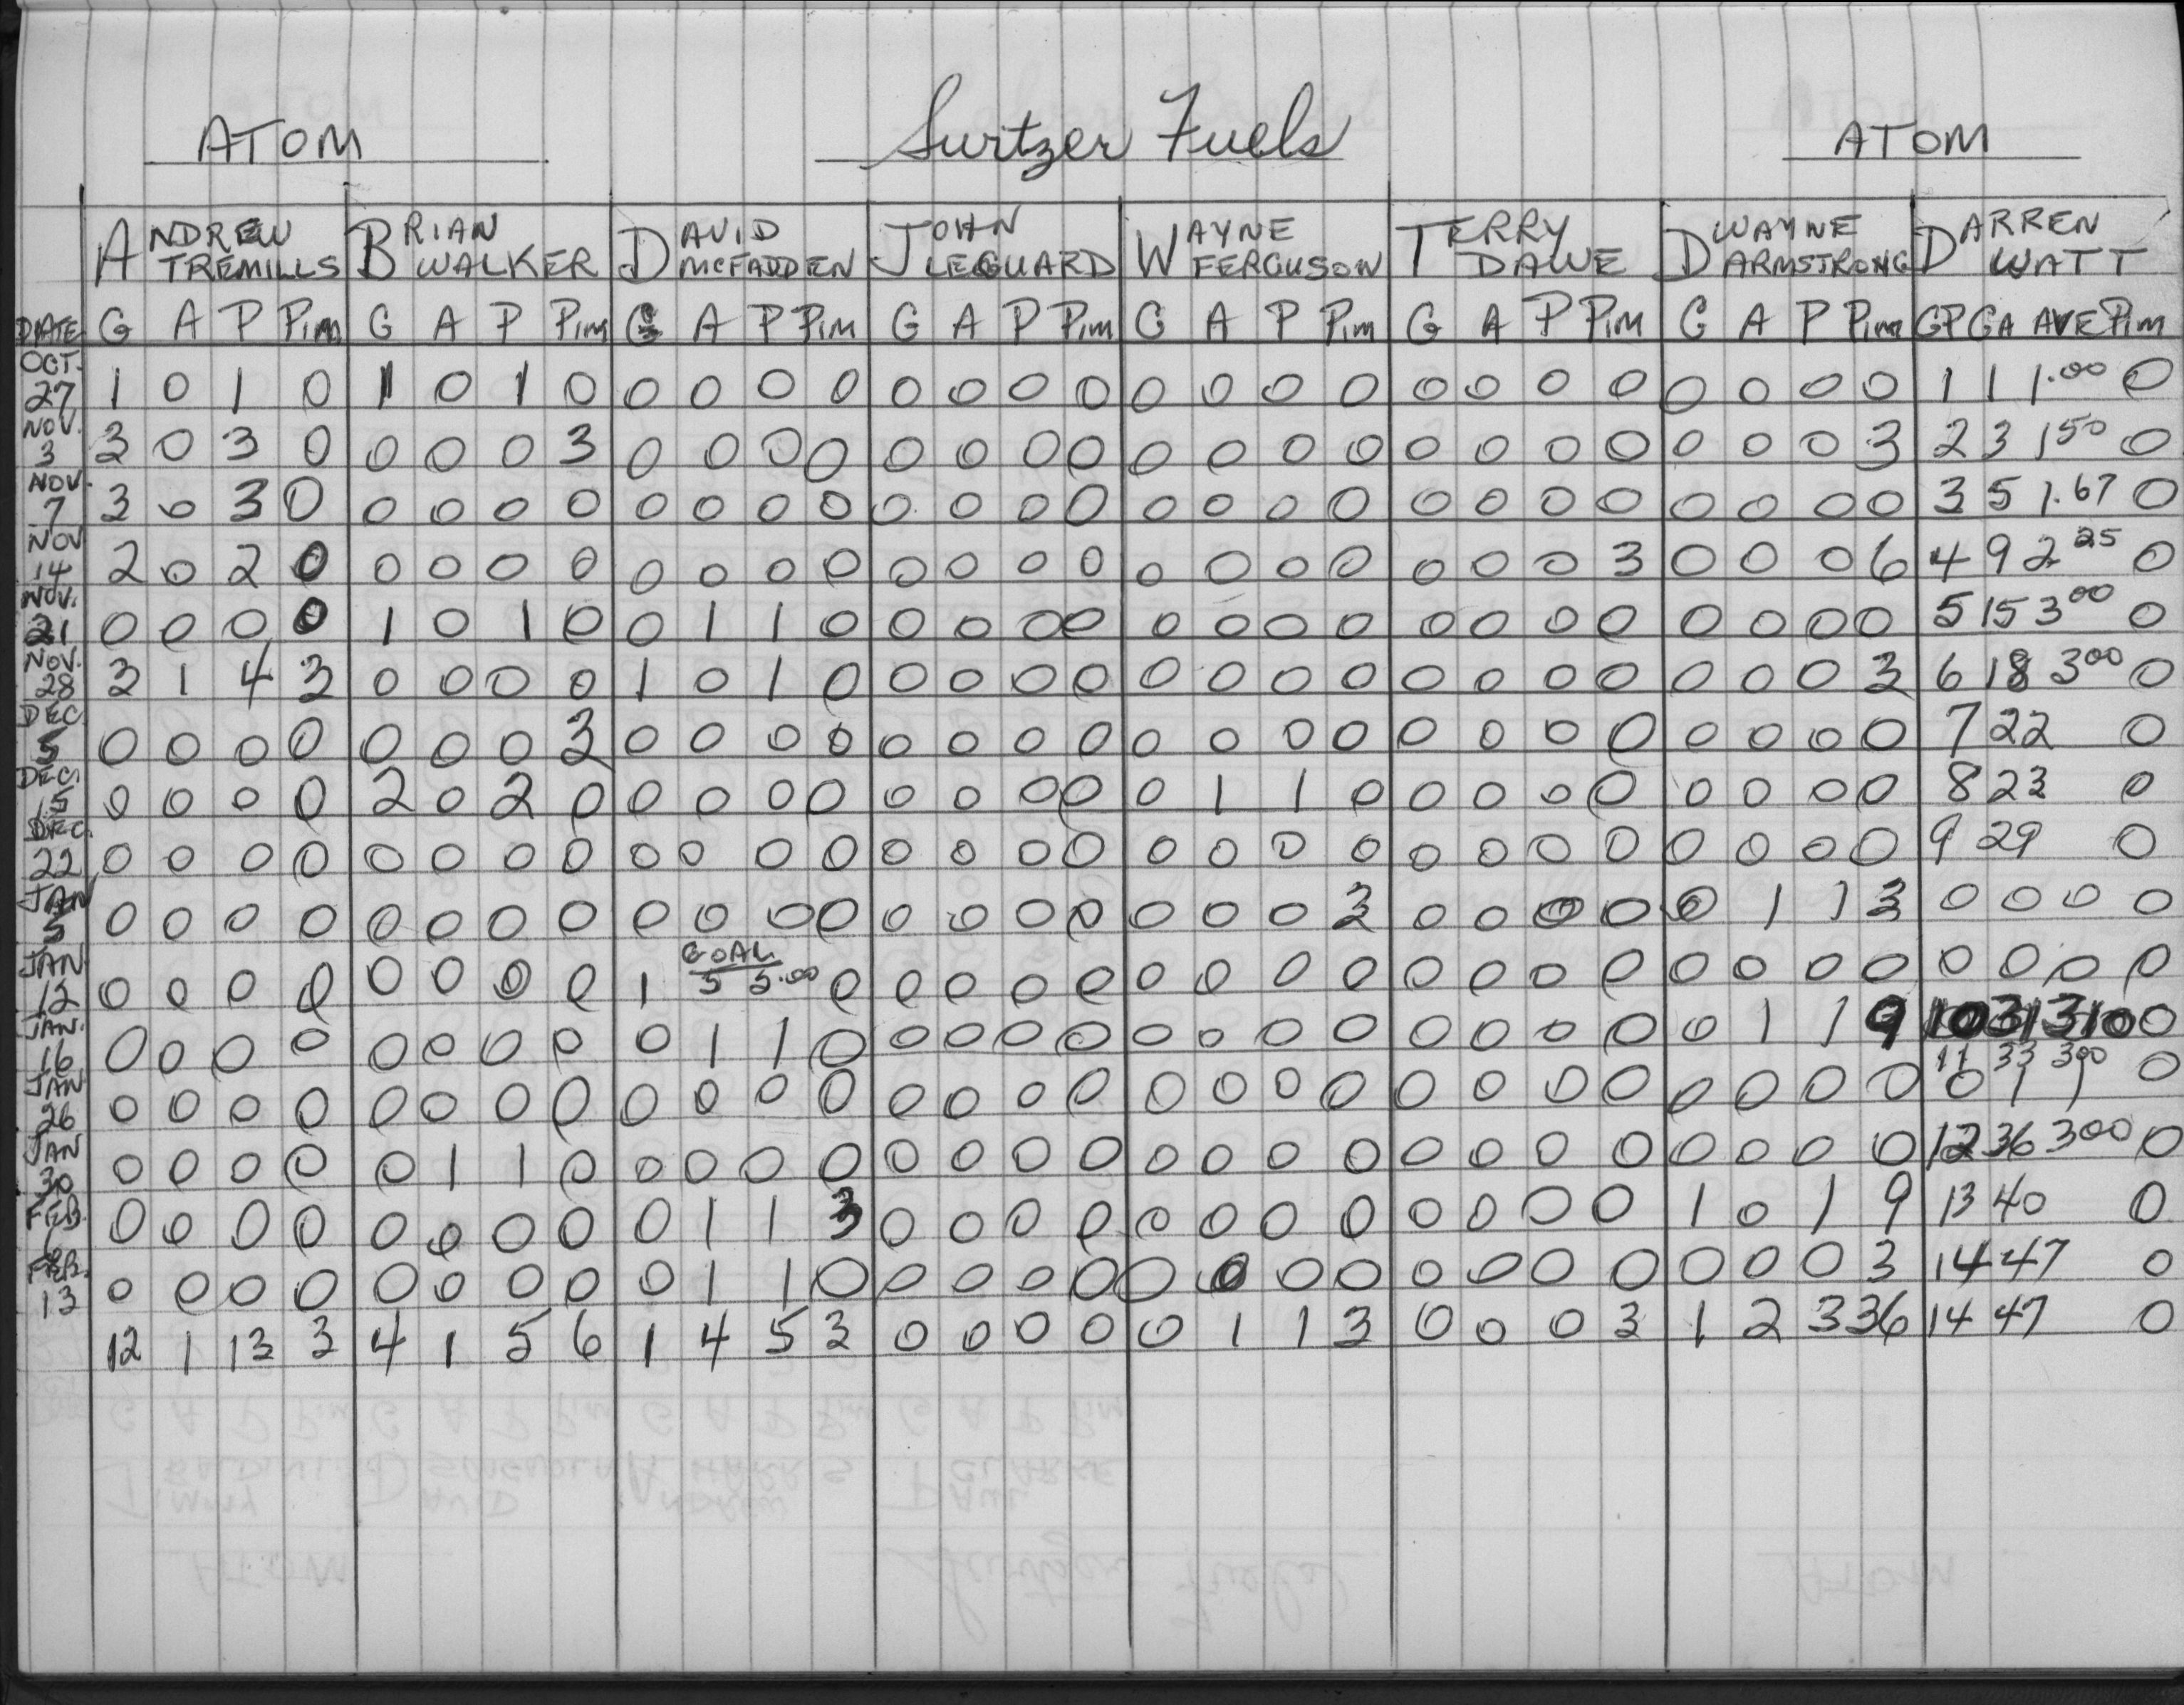 ATOM Surtzer Fuels ATOM
ANDREW TREMILLS BRIAN WALKER DAVID McFADDEN JOHN LEGUARD WAYNE FERGUSON TERRY DAWE DWAYNE ARMSTRONG DARREN WATT
DATE G A P Pim G A P Pim G A P Pim G A P Pim G A P Pim G A P Pim G A P Pim GP GA AVE Pim
OCT. 27 1 0 1 0 1 0 1 0 0 0 0 0 0 0 0 0 0 0 0 0 0 0 0 0 0 0 0 0 1 1 1.00 0
NOV. 3 3 0 3 0 0 0 0 3 0 0 0 0 0 0 0 0 0 0 0 0 0 0 0 0 0 0 0 3 2 3 1 50 0
NOV. 7 3 0 3 0 0 0 0 0 0 0 0 0 0 0 0 0 0 0 0 0 0 0 0 0 0 0 0 0 3 5 1.67 0
NOV 14 2 0 2 0 0 0 0 0 0 0 0 0 0 0 0 0 0 0 0 0 0 0 0 3 0 0 0 6 4 9 2 25 0
NOV. 21 0 0 0 0 1 0 1 0 0 1 1 0 0 0 0 0 0 0 0 0 0 0 0 0 0 0 0 0 5 15 3 00 0
NOV. 28 3 1 4 3 0 0 0 0 1 0 1 0 0 0 0 0 0 0 0 0 0 0 0 0 0 0 0 3 6 18 3 00 0
DEC. 5 0 0 0 0 0 0 0 3 0 0 0 0 0 0 0 0 0 0 0 0 0 0 0 0 0 0 0 0 7 22 0
DEC. 15 0 0 0 0 2 0 2 0 0 0 0 0 0 0 0 0 0 1 1 0 0 0 0 0 0 0 0 0 8 23 0
DEC. 22 0 0 0 0 0 0 0 0 0 0 0 0 0 0 0 0 0 0 0 0 0 0 0 0 0 0 0 0 9 29 0
JAN 5 0 0 0 0 0 0 0 0 0 0 0 0 0 0 0 0 0 0 0 3 0 0 0 0 0 1 1 3 0 0 0 0
JAN 12 0 0 0 0 0 0 0 0 1 GOAL 5 5.00 0 0 0 0 0 0 0 0 0 0 0 0 0 0 0 0 0 0 0 0 0
JAN. 16 0 0 0 0 0 0 0 0 0 1 1 0 0 0 0 0 0 0 0 0 0 0 0 0 0 1 1 9 10 31 310 0
JAN 26 0 0 0 0 0 0 0 0 0 0 0 0 0 0 0 0 0 0 0 0 0 0 0 0 0 0 0 0 11 33 300 0 1 1 0
JAN 30 0 0 0 0 0 1 1 0 0 0 0 0 0 0 0 0 0 0 0 0 0 0 0 0 0 0 0 0 12 36 300 0
FEB. 0 0 0 0 0 0 0 0 0 1 1 3 0 0 0 0 0 0 0 0 0 0 0 0 1 0 1 9 13 40 0
FEB. 13 0 0 0 0 0 0 0 0 0 1 1 0 0 0 0 0 0 0 0 0 0 0 0 0 0 0 0 3 14 47 0
12 1 13 3 4 1 5 6 1 4 5 3 0 0 0 0 0 1 1 3 0 0 0 3 1 2 3 36 14 47 0